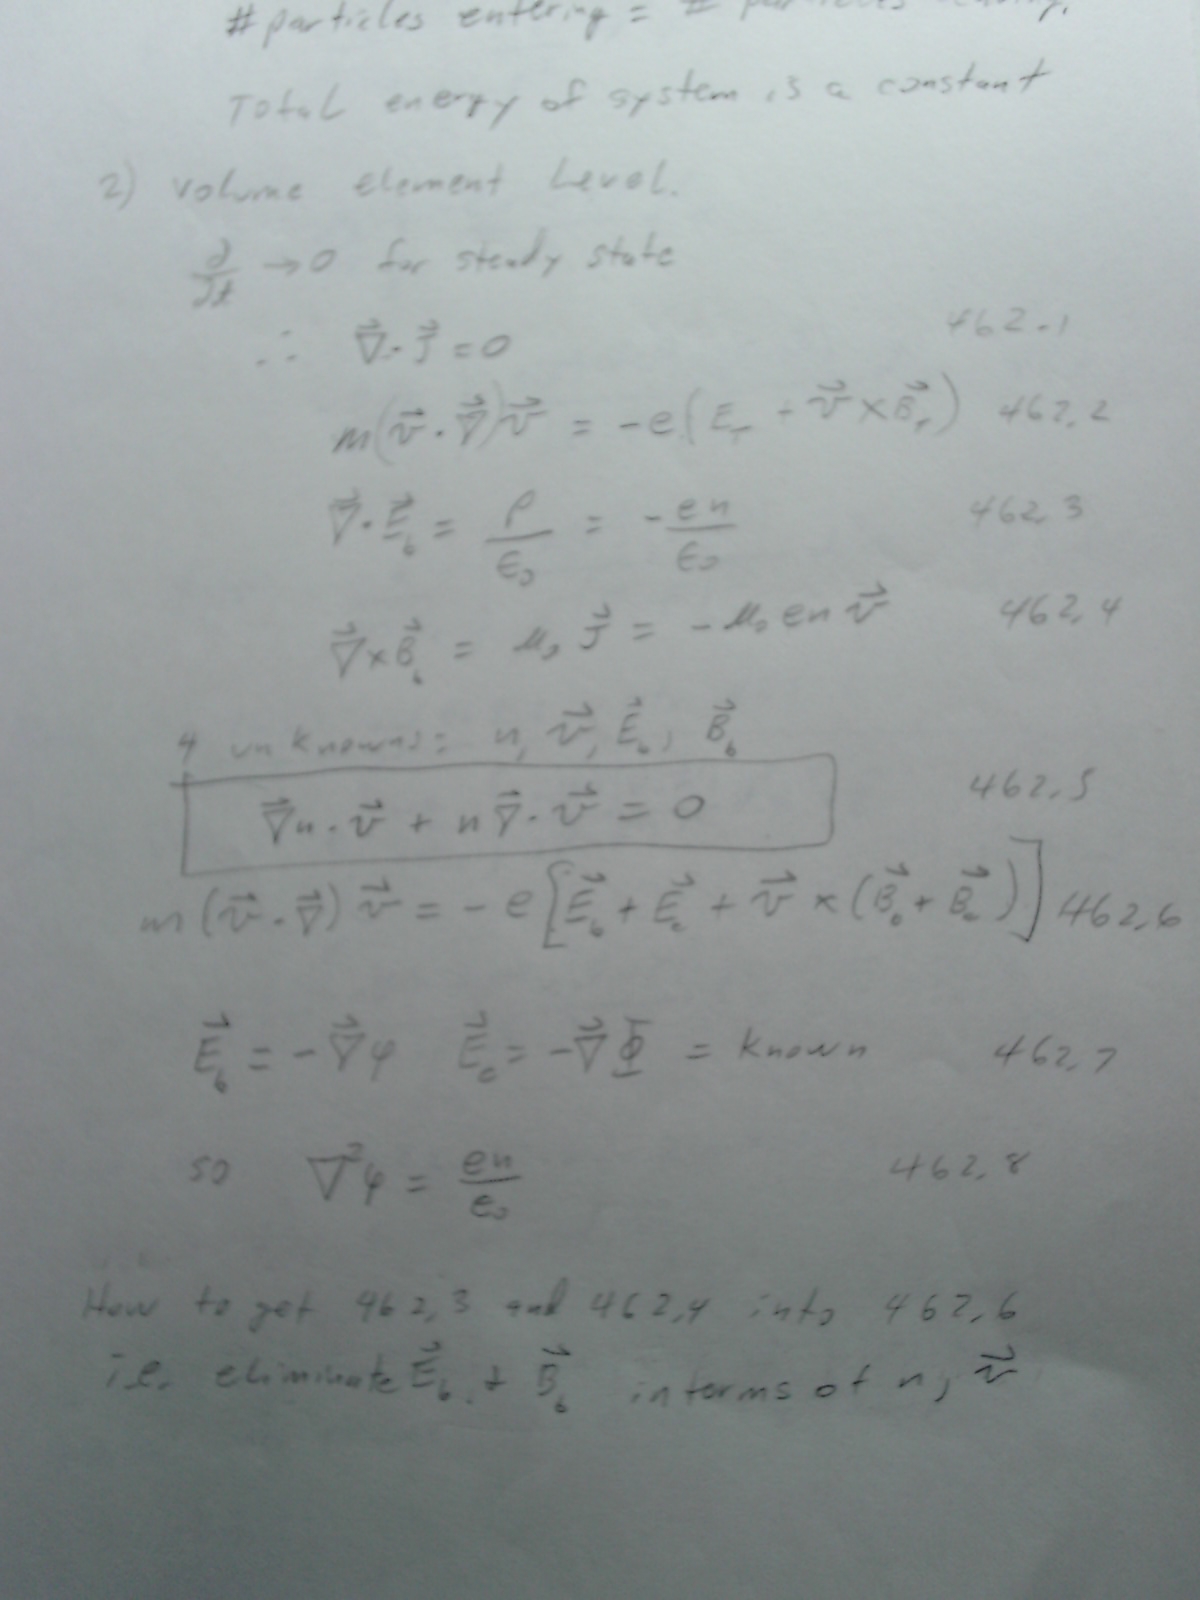 # particles entering = # particles
Total energy of system is a constant
2) Volume Element Level.
∂/∂t → 0 for steady state
∴ ∇⃗·J⃗ = 0 462.1
m(v⃗·∇⃗)v⃗ = -e(E_T + v⃗×B⃗_T) 462.2
∇⃗·E⃗_b = ρ/ε₀ = -en/ε₀ 462.3
∇⃗×B⃗_b = μ₀J⃗ = -μ₀env⃗ 462.4
4 unknowns: n, v⃗, E⃗_b, B⃗_b
∇⃗n·v⃗ + n∇⃗·v⃗ = 0 462.5
m(v⃗·∇⃗)v⃗ = -e[E⃗_b + E⃗_c + v⃗×(B⃗_b + B⃗_c)] 462.6
E⃗_b = -∇⃗φ E⃗_c = -∇⃗Φ = known 462.7
so ∇²φ = en/ε₀ 462.8
How to get 462.3 and 462.4 into 462.6
i.e. eliminate E⃗_b + B⃗_b in terms of n, v⃗